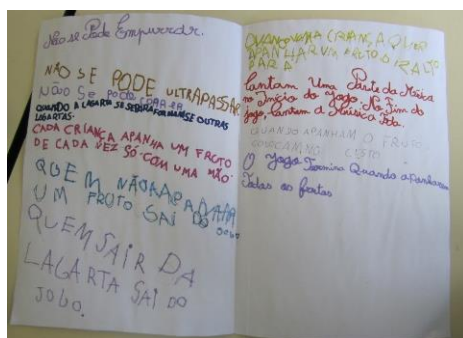 Não se Pode Empurrar.
NÃO SE PODE ULTRAPASSAR
NÃO Se pode
QUANDO A LAGARTA SE SEPARA FORMAM-SE OUTRAS
LAGARTAS.
CADA CRIANÇA APANHA UM FRUTO
DE CADA VEZ SÓ COM UMA MÃO.
QUEM NÃO APANHA
UM FRUTO SAI DO JOGO
QUEM SAIR DA
LAGARTA SAI DO
JOGO.
QUANDO UMA CRIANÇA QUER
APANHAR UM FRUTO O
PARA
Cantam Uma Parte da Música
no Início do Jogo. No Fim do
Jogo, Cantam a Música Toda.
QUANDO APANHAM O FRUTO
COLOCAM NO CESTO
O Jogo Termina Quando apanharem
Todos os frutos